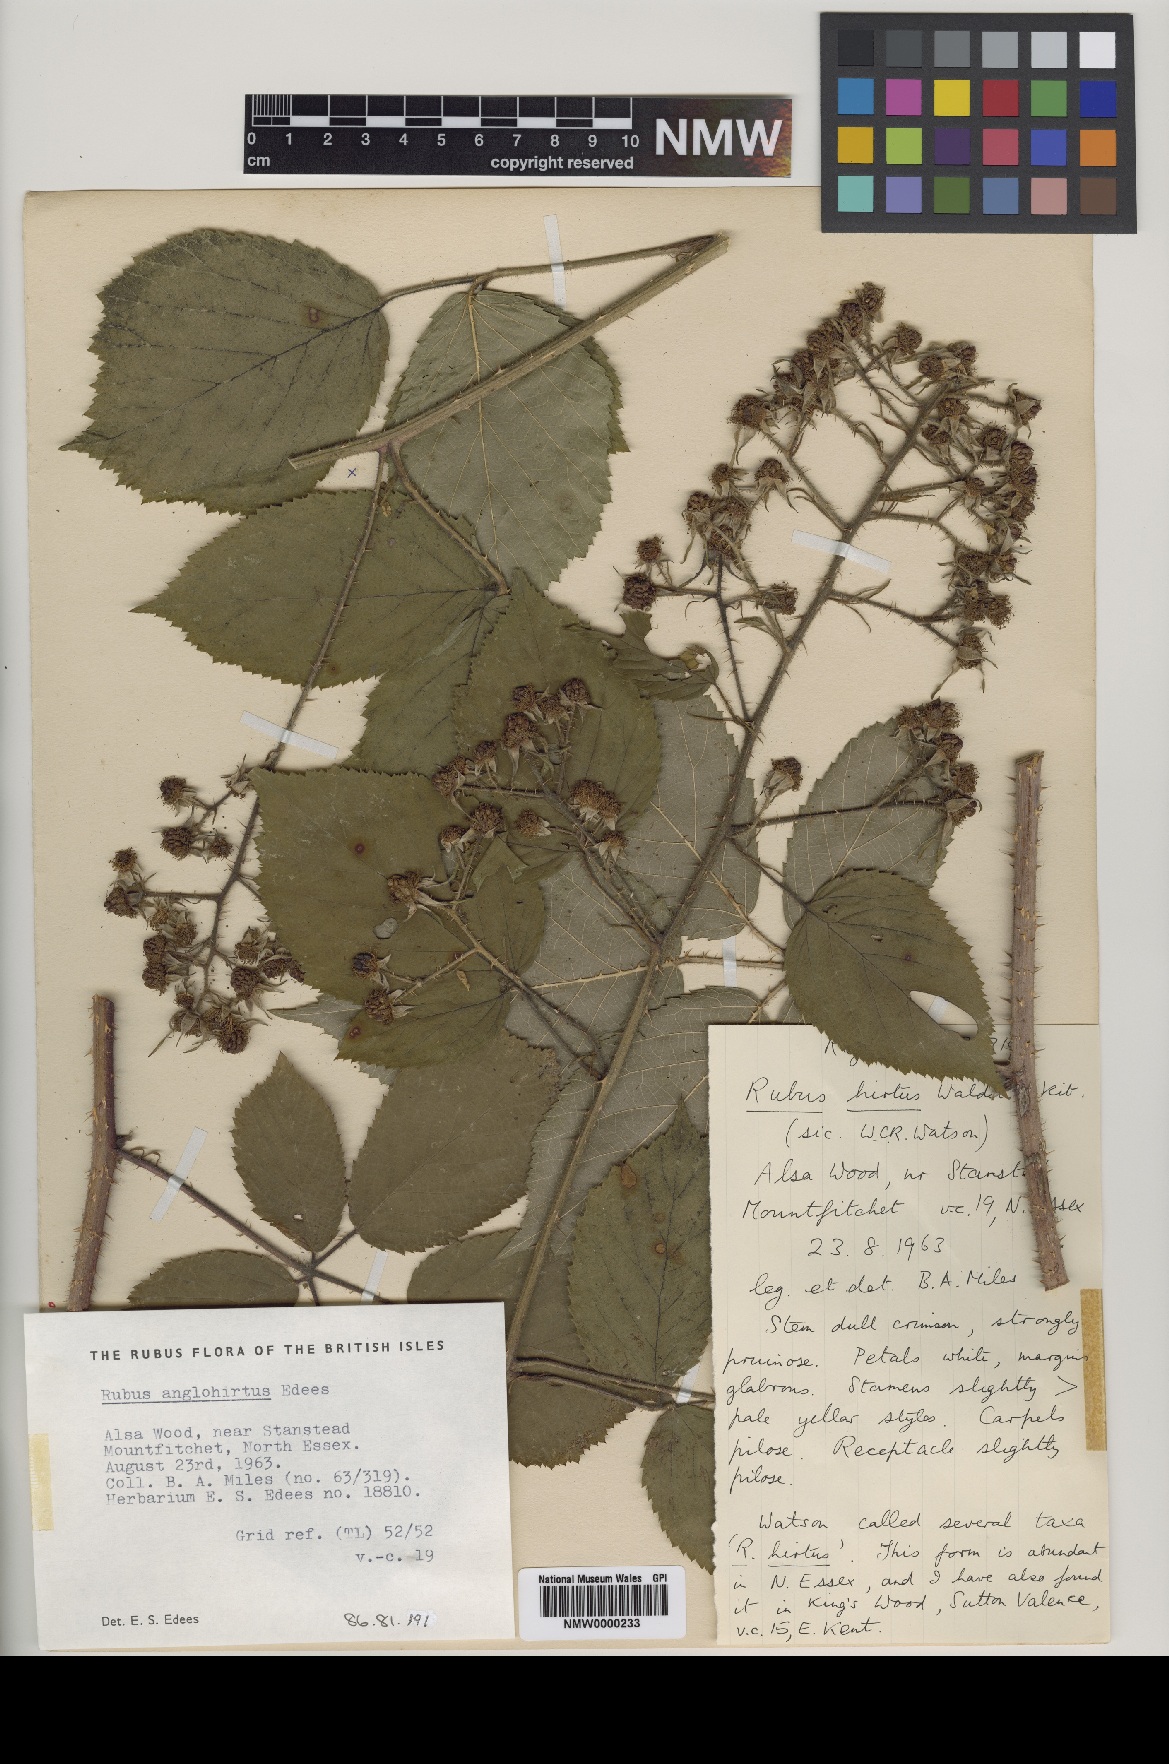 0 1 2 3 4 5 6 7 8 9 10
cm
copyright reserved
NMW
Rubus hirtus Waldst
Kit.
(sic. W.C.R. Watson)
Alsa Wood, nr Stanst
Mountfitchet v.c. 19, N. Essex
23. 8. 1963
leg. et det. B.A. Miles
Stem dull crimson, strongly
pruinose. Petals white, margins
glabrous. Stamens slightly >
pale yellow styles. Carpels
pilose. Receptacle slightly
pilose.
Watson called several taxa
'R. hirtus'. This form is abundant
in N. Essex, and I have also found
it in King's Wood, Sutton Valence,
v.c. 15, E. Kent.
THE RUBUS FLORA OF THE BRITISH ISLES
Rubus anglohirtus Edees
Alsa Wood, near Stanstead
Mountfitchet, North Essex.
August 23rd, 1963.
Coll. B. A. Miles (no. 63/319).
Herbarium E. S. Edees no. 18810.
Grid ref. (TL) 52/52
v.-c. 19
Det. E. S. Edees
86.81.191
National Museum Wales GPI
NMW0000233